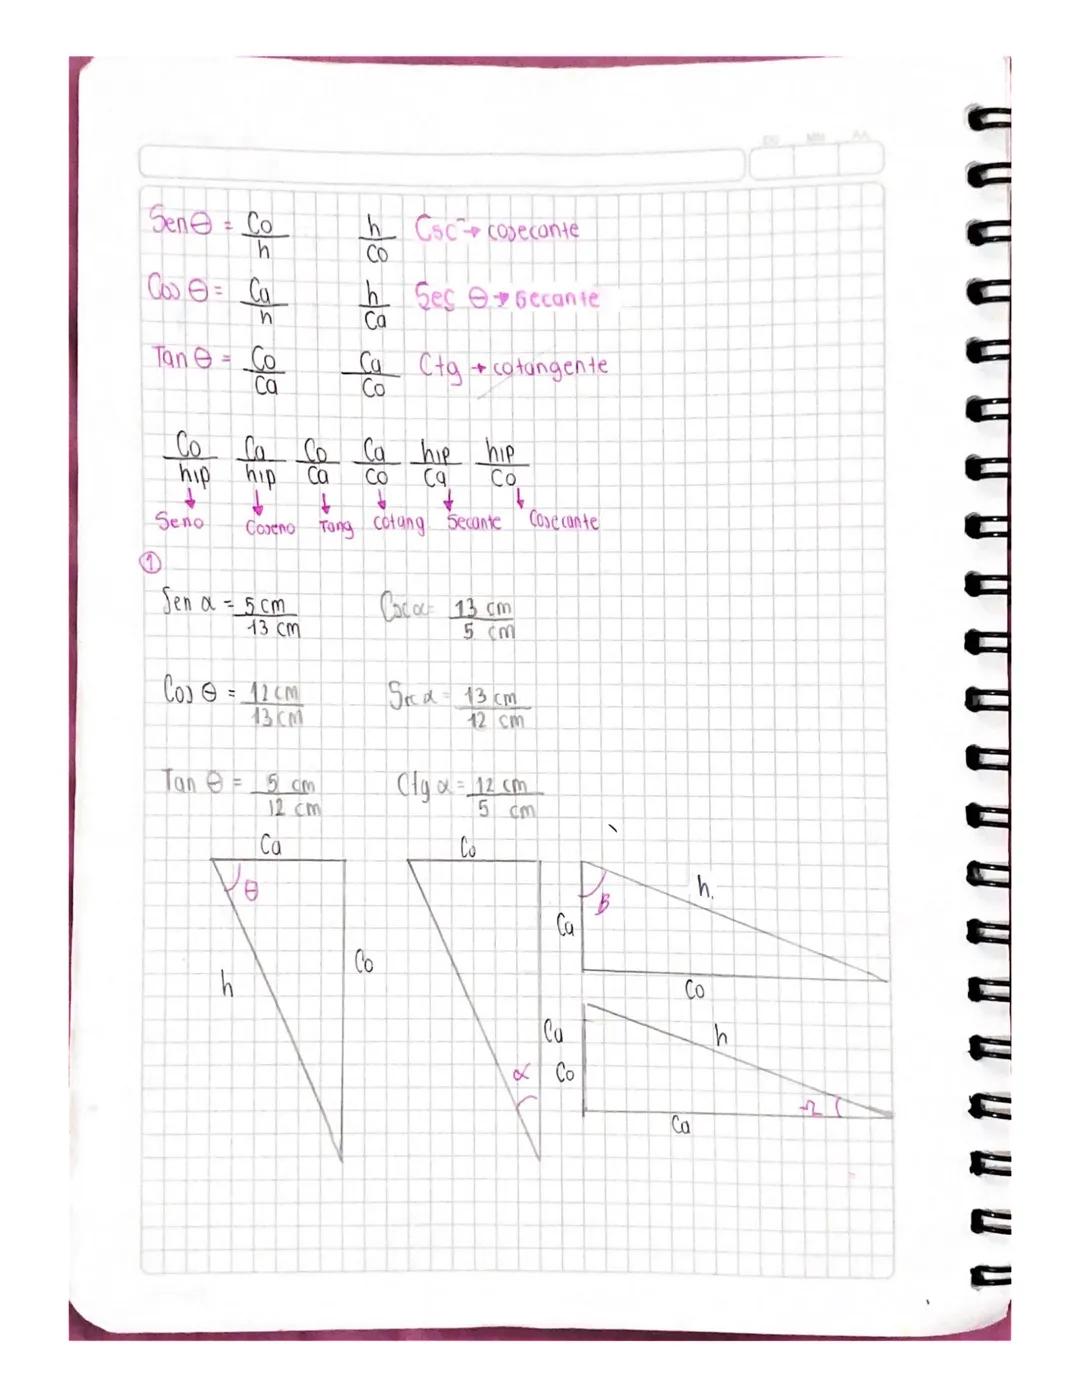 DD MM AA
Sen θ = Co/h h/Co Csc → cosecante
Cos θ = Ca/h h/Ca Sec θ → Secante
Tan θ = Co/Ca Ca/Co Ctg → cotangente
Co/hip Ca/hip Co/Ca Ca/Co hip/Ca hip/Co
Seno Coseno Tang cotang Secante Cosecante
①
Sen α = 5 cm/13 cm Csc α = 13 cm/5 cm
Cos θ = 12 cm/13 cm Sec α = 13 cm/12 cm
Tan θ = 5 cm/12 cm Ctg α = 12 cm/5 cm
Ca
θ
h
Co
Co
Ca
α
h.
B
Ca
Co
h
Co
Ω
Ca